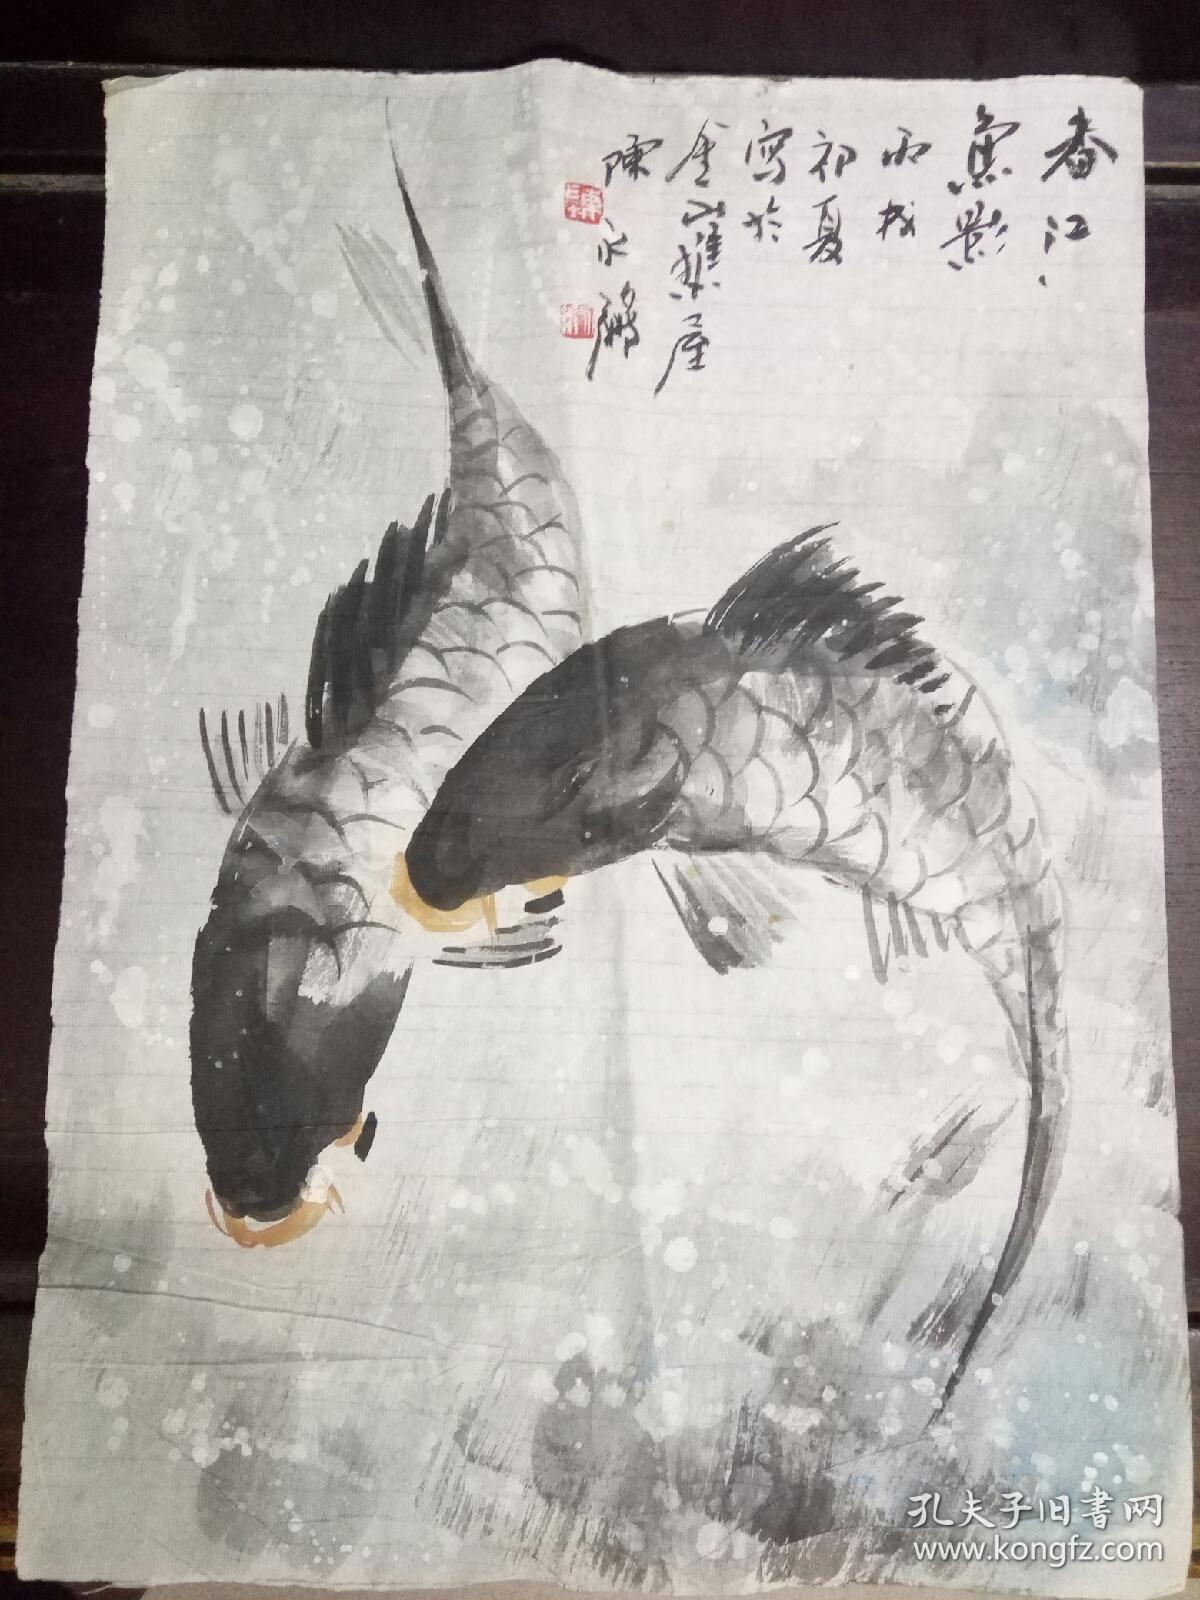 春江
魚影
丙戌
初夏
写於
金山雅集屋
陳永鹏
孔夫子旧書网
www.kongfz.com